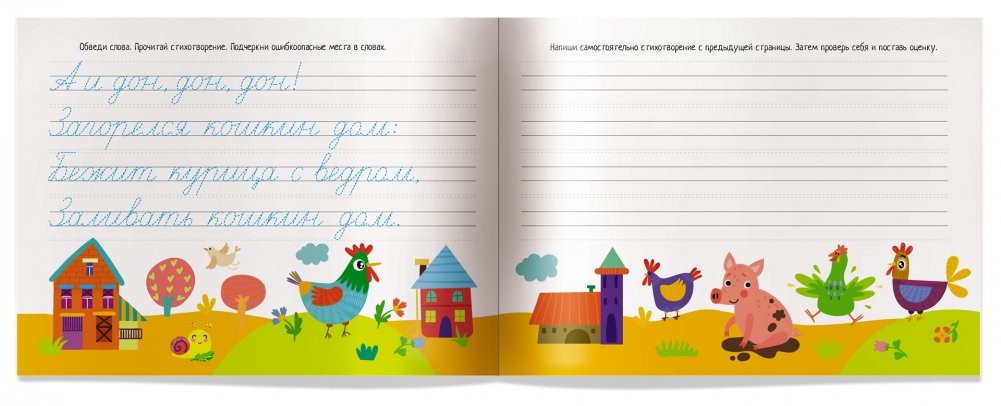 Обведи слова. Прочитай стихотворение. Подчеркни ошибкоопасные места в словах.
А и дон, дон, дон!
Загорелся кошкин дом:
Бежит курица с ведром,
Заливать кошкин дом.
Напиши самостоятельно стихотворение с предыдущей страницы. Затем проверь себя и поставь оценку.